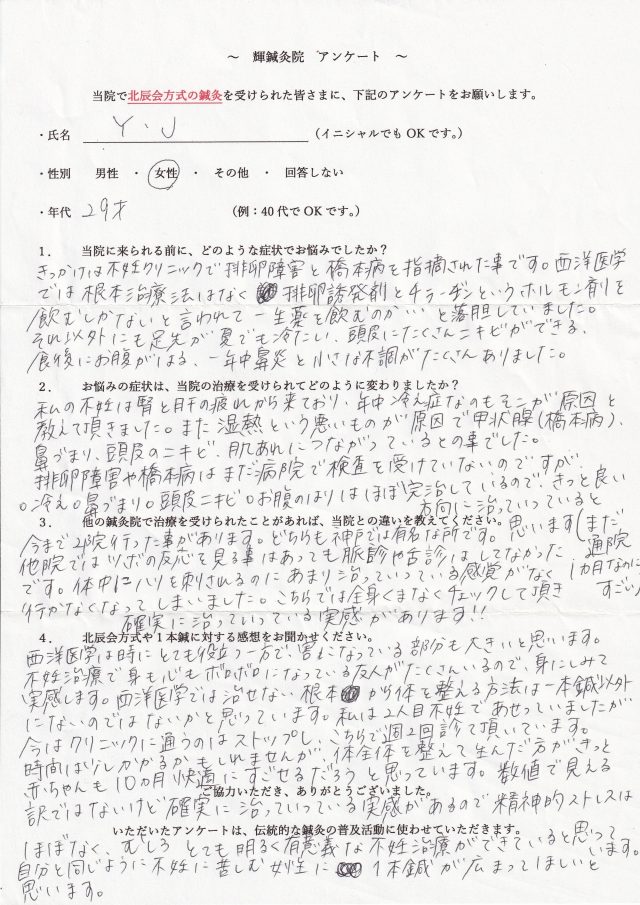 ～　輝鍼灸院　アンケート　～
当院で北辰会方式の鍼灸を受けられた皆さまに、下記のアンケートをお願いします。
・氏名　Y・J　（イニシャルでもOKです。）
・性別　男性　・　女性　・　その他　・　回答しない
・年代　29才　（例：40代でOKです。）
1．　当院に来られる前に、どのような症状でお悩みでしたか？
きっかけは不妊クリニックで排卵障害と橋本病を指摘された事です。西洋医学
では根本治療法はなく 排卵誘発剤とチラーヂンというホルモン剤を
飲むしかないと言われて一生薬を飲むのか…と落胆していました。
それ以外にも足先が夏でも冷たい、頭皮にたくさんニキビができる、
食後にお腹がはる、一年中鼻炎と小さな不調がたくさんありました。
2．　お悩みの症状は、当院の治療を受けられてどのように変わりましたか？
私の不妊は腎と肝の疲れから来ており、年中冷え症なのもそこが原因と
教えて頂きました。また湿熱という悪いものが原因で甲状腺(橋本病)、
鼻づまり、頭皮のニキビ、肌あれにつながっているとの事でした。
排卵障害や橋本病はまだ病院で検査を受けていないのですが、
○冷え○鼻づまり○頭皮ニキビ○お腹のはりはほぼ完治しているので、きっと良い
方向に治っていっていると
3．　他の鍼灸院で治療を受けられたことがあれば、当院との違いを教えてください。
思います(まだ
通院
1カ月なのに
すごい)
今まで2院行った事があります。どちらも神戸では有名な所です。
他院ではツボの反応を見る事はあっても脈診や舌診はしてなかった
です。体中にハリを刺されるのにあまり治っていっている感覚がなく
行かなくなってしまいました。こちらでは全身くまなくチェックして頂き
確実に治っていっている実感があります!!
4．　北辰会方式や1本鍼に対する感想をお聞かせください。
西洋医学は時にとても役立つ一方で、害になっている部分も大きいと思います。
不妊治療で身も心もボロボロになっている友人がたくさんいるので、身にしみて
実感します。西洋医学では治せない根本から体を整える方法は一本鍼以外
にないのではないかと思っています。私は2人目不妊であせっていましたが
今はクリニックに通うのはストップし、こちらで週2回診て頂いています。
時間は少しかかるかもしれませんが、体全体を整えて生んだ方がきっと
赤ちゃんも10カ月快適にすごせるだろうと思っています。数値で見える
ご協力いただき、ありがとうございました。
訳ではないけど確実に治っていっている実感があるので精神的ストレスは
いただいたアンケートは、伝統的な鍼灸の普及活動に使わせていただきます。
ほぼなく、むしろとても明るく有意義な不妊治療ができていると思って
います。
自分と同じように不妊に苦しむ女性に 1本鍼が広まってほしいと
思います。